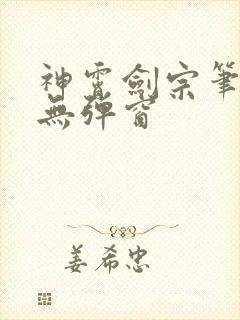 神霄劍宗筆
無彈窗
姜希忠